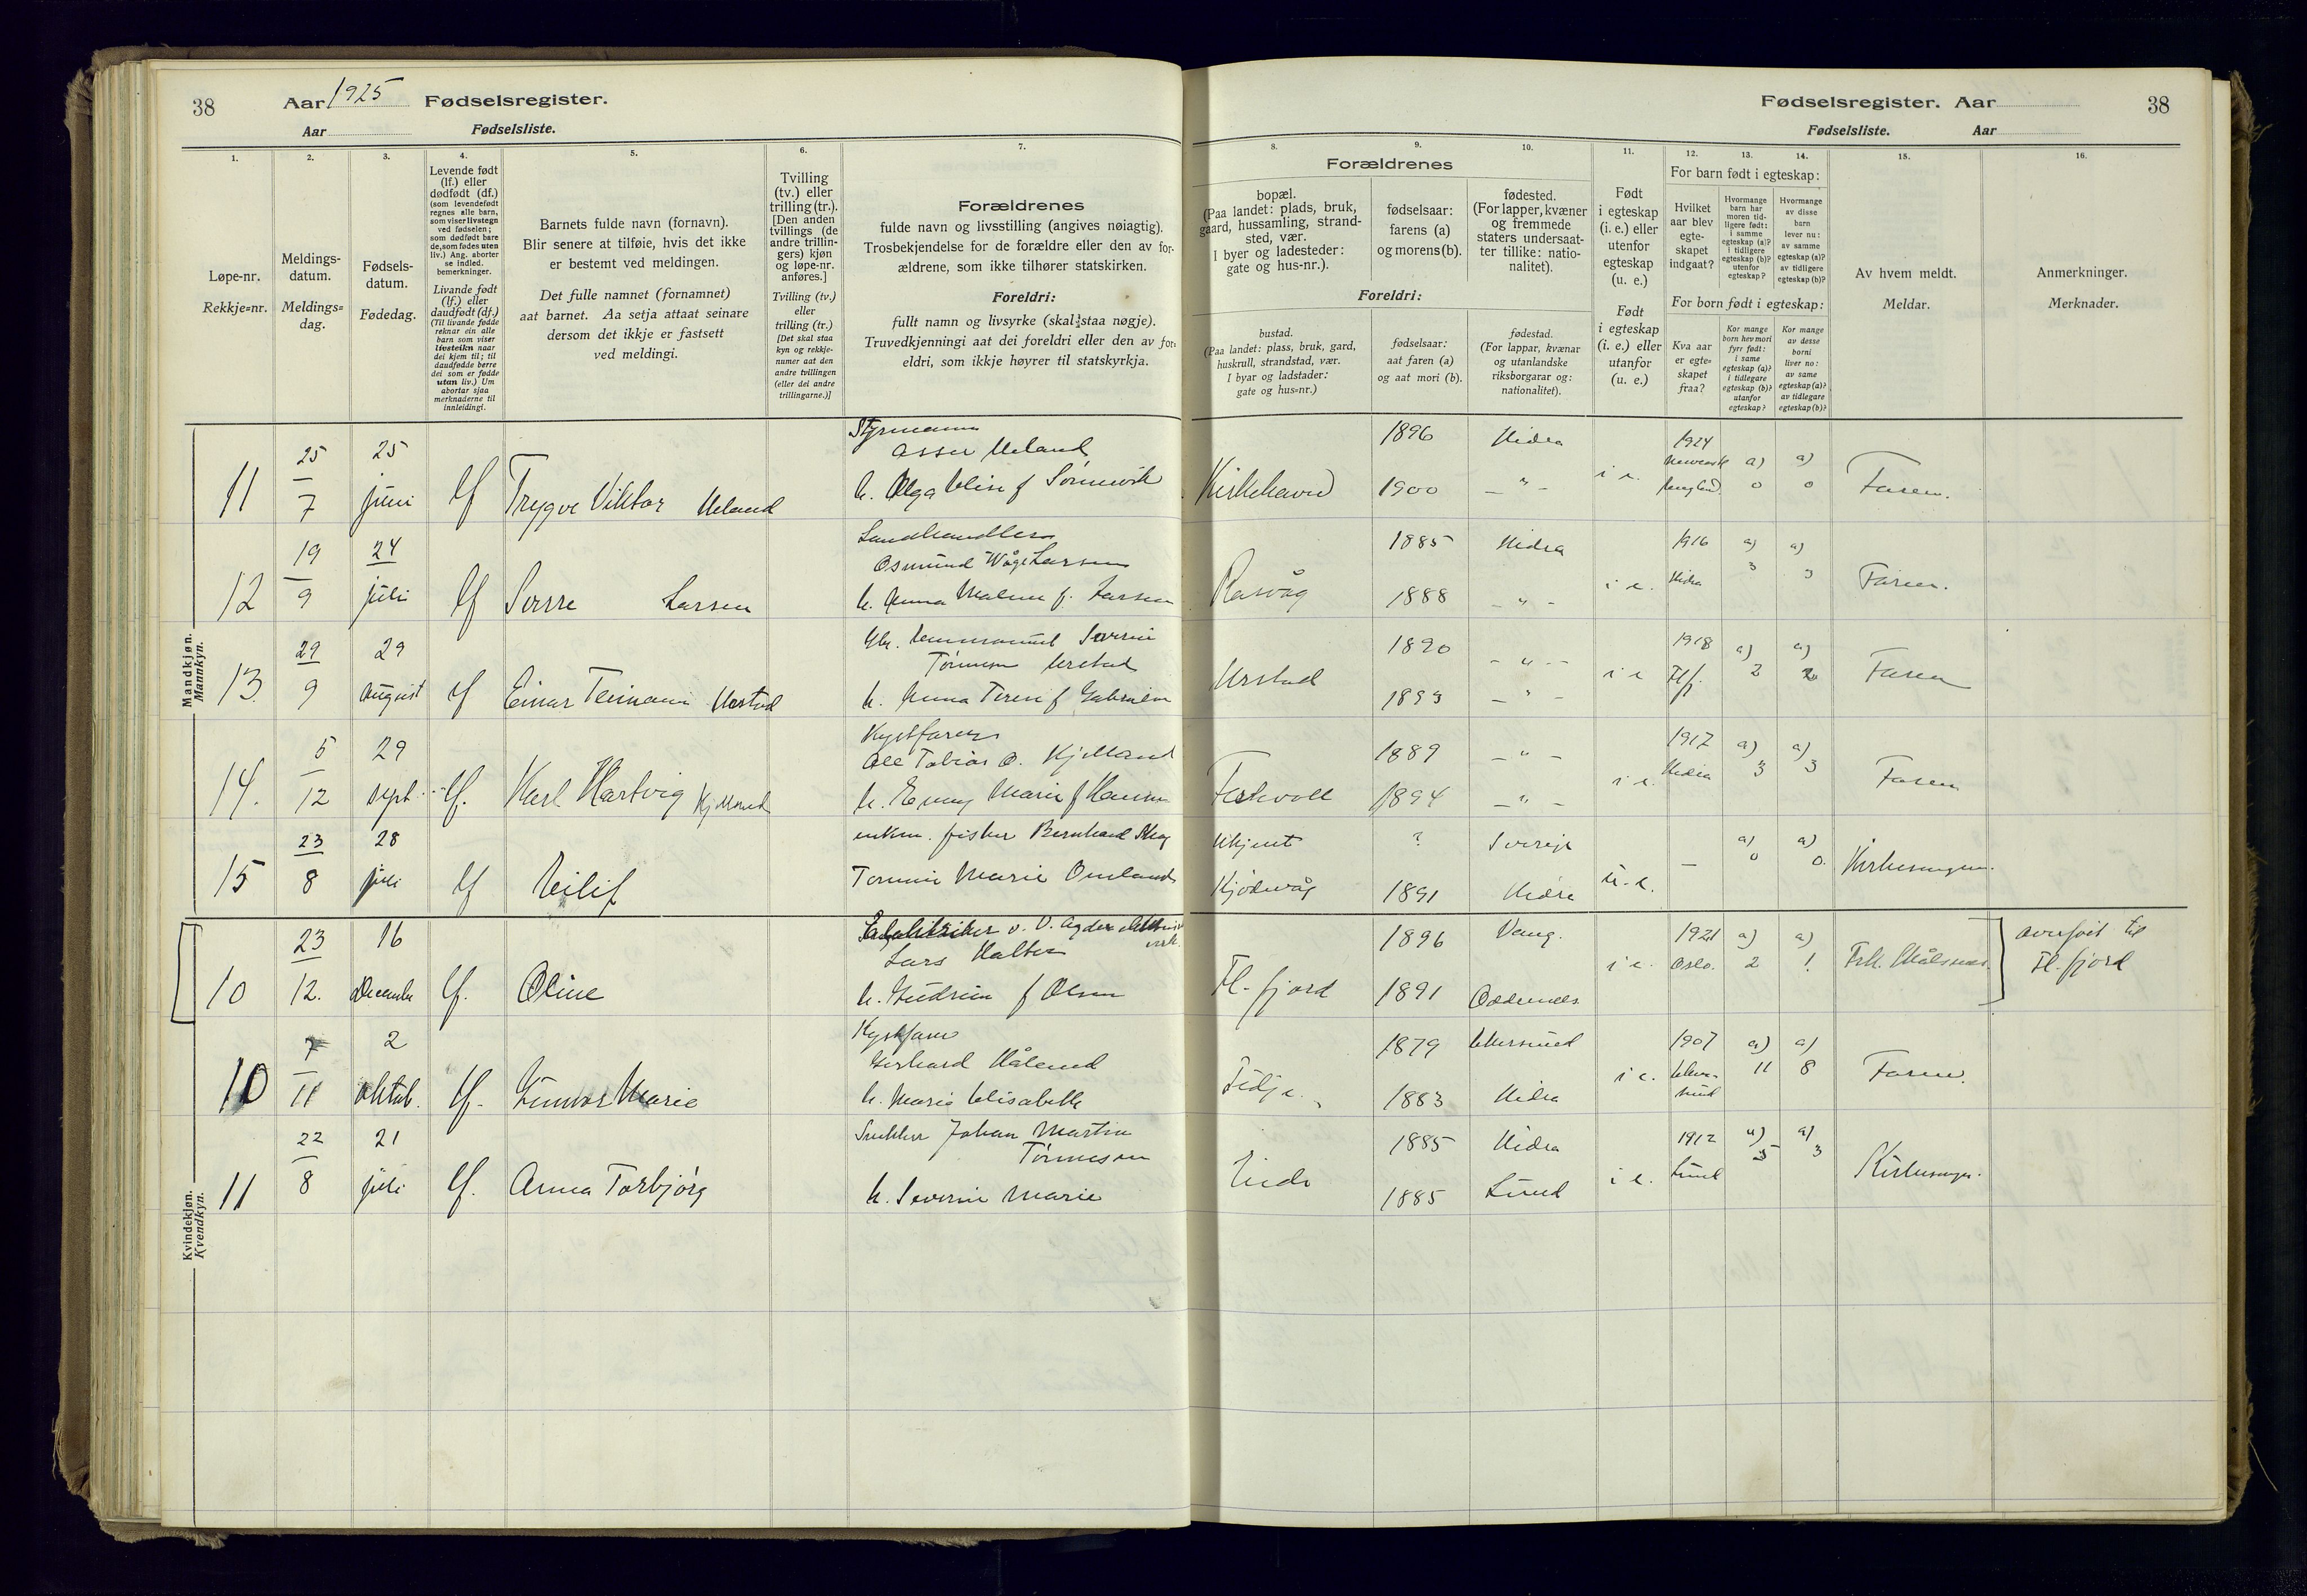 38 Aar 1925 Fødselsregister.
Aar Fødselsliste.
1.
Løpe-nr.
Rekkje=nr.
2.
Meldings-
datum.
Meldings=
dag.
3.
Fødsels-
datum.
Fødedag.
4.
Levende født
(lf.) eller
dødfødt (df.)
(som levendefødt
regnes alle barn,
som viser livstegn
ved fødselen;
som dødfødt bare
de, som fødes uten
liv.) Ang. aborter
se indled.
bemerkninger.
Livande født
(lf.) eller
daudfødt (df.)
(Til livande fødde
reknar ein alle
barn som viser
livsteikn naar
dei kjem til; til
daudfødde berre
dei som er fødde
utan liv.) Um
abortar sjaa
merknaderne til
innleidingi.
5.
Barnets fulde navn (fornavn).
Blir senere at tilføie, hvis det ikke
er bestemt ved meldingen.
Det fulle namnet (fornamnet)
aat barnet. Aa setja attaat seinare
dersom det ikkje er fastsett
ved meldingi.
6.
Tvilling
(tv.) eller
trilling (tr.).
[Den anden
tvillings (de
andre trillin-
gers) kjøn
og løpe-nr.
anføres.]
Tvilling (tv.)
eller
trilling (tr.)
[Det skal staa
kyn og rekkje-
numer aat den
andre tvillingen
(eller dei andre
trillingarne.)]
7.
Forældrenes
fulde navn og livsstilling (angives nøiagtig).
Trosbekjendelse for de forældre eller den av for-
ældrene, som ikke tilhører statskirken.
Foreldri:
fullt namn og livsyrke (skal staa nøgje).
Truvedkjenningi aat dei foreldri eller den av for-
eldri, som ikkje høyrer til statskyrkja.
Fødselsregister. Aar 38
Fødselsliste. Aar
8.
Forældrenes
bopæl.
(Paa landet: plads, bruk,
gaard, hussamling, strand-
sted, vær.
I byer og ladesteder:
gate og hus-nr.).
Foreldri:
bustad.
(Paa landet: plass, bruk, gard,
huskrull, strandstad, vær.
I byar og ladstader:
gate og hus=nr.)
9.
fødselsaar:
farens (a)
og morens (b).
fødselsaar:
aat faren (a)
og aat mori (b).
10.
fødested.
(For lapper, kvæner
og fremmede
staters undersaat-
ter tillike: natio-
nalitet).
fødestad.
(For lappar, kvænar
og utanlandske
riksborgarar og:
nationalitet).
11.
Født
i egteskap
(i. e.) eller
utenfor
egteskap
(u. e.)
Født
i egteskap
(i. e.) eller
utanfor
egteskap
(u. e.)
12.
For barn født i egteskap:
Hvilket
aar blev
egte-
skapet
indgaat?
For born født i egteskap:
Kva aar
er egte=
skapet
fraa?
13.
Hvormange
barn har
moren tid-
ligere født:
i samme
egteskap (a)?
i tidligere
egteskap (b)?
utenfor
egteskap?
Kor mange
born hev mori
fyrr født:
i same
egteskap (a)?
i tidlegare
egteskap (b)?
utanfor
egteskap?
14.
Hvormange
av disse
barn
lever nu:
av samme
egteskap (a)?
av tidligere
egteskap (b)?
Kor mange
av desse
borni
liver no:
av same
egteskap (a)?
av tidlegare
egteskap (b)?
15.
Av hvem meldt.
Meldar.
16.
Anmerkninger.
Merknader.
Mandkjøn.
Mannkyn.
11 25/7 25 juni lf Trygve Viktor Ueland
Styrmann
Asser Ueland
h. Olga Elise f Sørnevik
Kirkehavn 1896 Hidra i e. 1924 a) a) Faren.
1900 — " — England 0 0
12 19/9 24 juli lf Sverre Larsen
Landhandler
Osmund Våge Larsen
h. Anna Malene f. Larsen
Rasvåg 1885 Hidra i e. 1916 a) a) Faren.
1888 — " — Hidra 3 3
13. 29/9 29 August lf Einar Urstad
Severin
Tønnesen Urstad
h. Anna f Gabrielsen
Urstad 1890 — " — i e 1918 a) a) Faren
1893 — " — Flf. 2 2
14. 5/12 29 sept. lf. Karl Hartvig Kjelland
Kystfarer
Ole Tobias O. Kjelland
h. Emmy Marie f Hansen
1889 — " — i e. 1917 a) a) Faren
1894 — " — Hidra 3 3
15 23/8 28 juli lf Eilif
enkm. fisker Bernhard
Marie Omland
Ukjent ? Sverige u. e. — a) a) Kirkesangen.
Kjødvåg 1891 Hidra 0 0.
Kvindekjøn.
Kvendkyn.
10 23/12. 16 Decembr lf. Oline
v. V. Agder
Lars Halter
h. Gudrun f Olsen
Fl.fjord 1896 Vang. i e. 1921 a) a) overført til
1891 Oddernes Oslo. 2 1 Fl.fjord
10 7/11 2 oktob. lf. Gunvor Marie
Kystfarer
Gerhard Håland
h. Marie Elisabeth
Fidje. 1879 Ekersund i e. 1907 a) a) Faren.
1883 Hidra Eker- 11 8
sund
11 22/8 21 juli lf. Anna Torbjørg
Snekker Johan Martin
Tønnesen
h. Severine Marie
Eide 1885 Hidra i e. 1912 a) a) Kirkesangen.
1885 Lund Lund 5 3